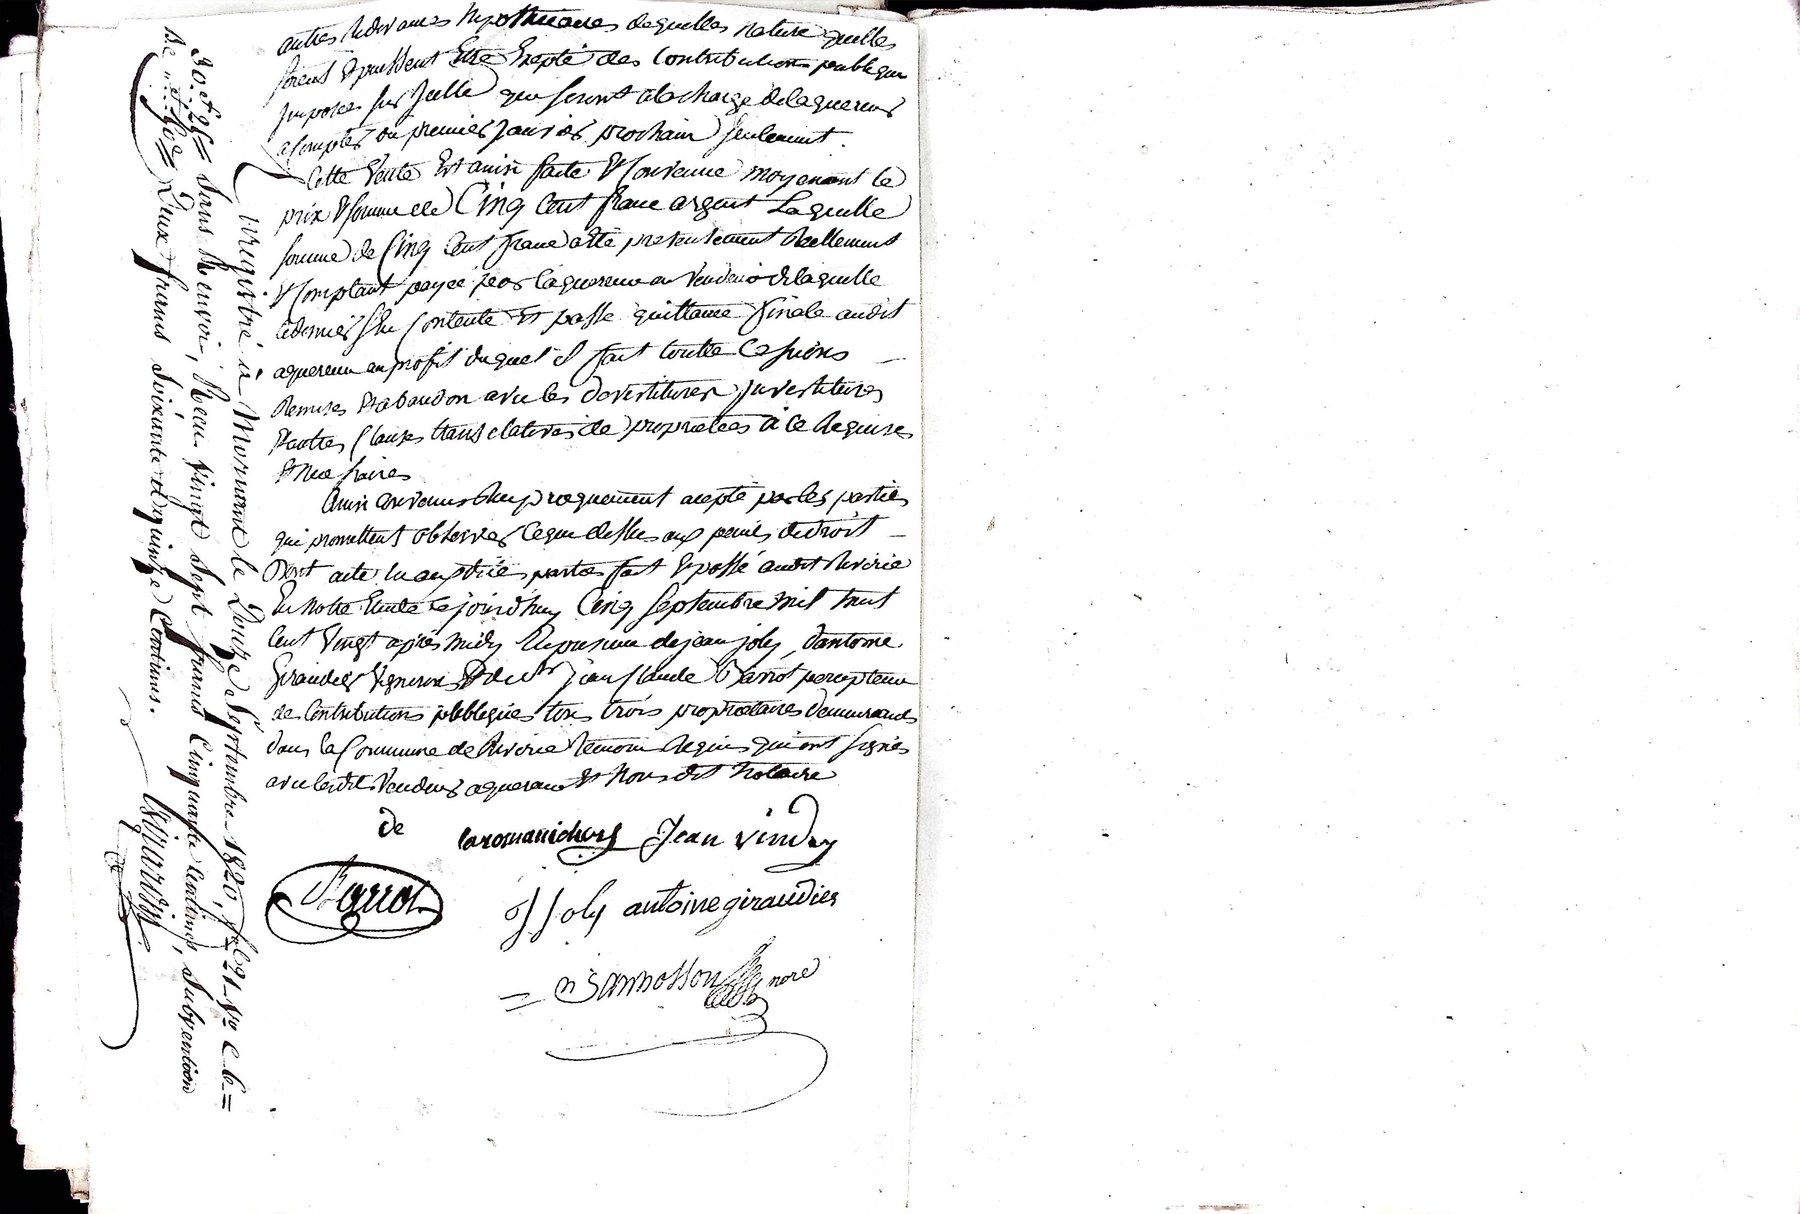 autres redevances hypothecaires dequelles nature quelles
soient & pussent Etre Exepté des Contributions publique
Imposee sur Icelle qui seront ala charge delaquereur
a Compter du premier Janvier prochain seulement.
Cette Vente Est ainsi faite & Convenue moyenant le
prix & somme de Cinq Cent franc argent Laquelle
somme de Cinq Cent franc a été presentement Reellement
& Comptant payée par laquereur au Vendeur delaquelle
ce dernier sen Contente Et passe quittance finale audit
aquereur au profit duquel il fait toutte Cessions
Remises Et abandon avec les devestitures Investitures
Et autres Clauses translatives de proprietées à ce Requises
Et Necessaires
Ainsi Convenus Reciproquement acepté par les parties
qui promettent observer ce que dessus aux peines de droit
Dont acte lu aux dites parties fait & passé audit Riverie
En Notre Etude Ce jourd'huy Cinq Septembre Mil huit
Cent Vingt après midy En presence de jean joly, dantoine
Giraudier Vigneron Et de Mr jean Claude Barrot percepteur
de Contributions publiques tous trois proprietaires demeurants
dans la Commune de Riverie temoins Requis qui ont signés
avec lesdits Vendeur aquereur Et Nous dit Notaire
De
Barrot
Jean Vindry
Joly antoine giraudier
nore
Enregistré à Mornant le Douze Septembre 1820, fol 21 Vo C. 6=
Sans Renvoi, Recu Vingt Sept francs Cinquante centimes, Subvention
Deux francs Soixante et quinze Centimes.